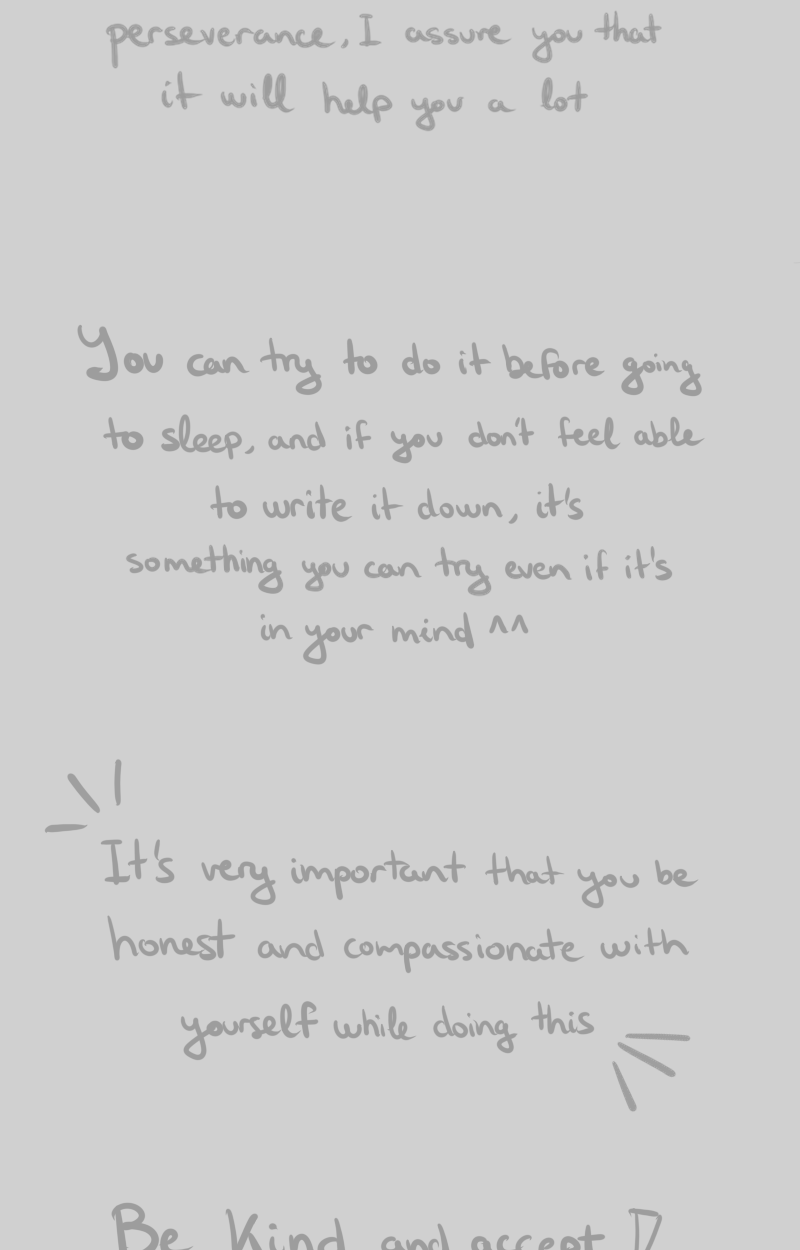 perseverance, I assure you that
it will help you a lot
You can try to do it before going
to sleep, and if you don't feel able
to write it down, it's
something you can try even if it's
in your mind ^^
It's very important that you be
honest and compassionate with
yourself while doing this
Be Kind and accept